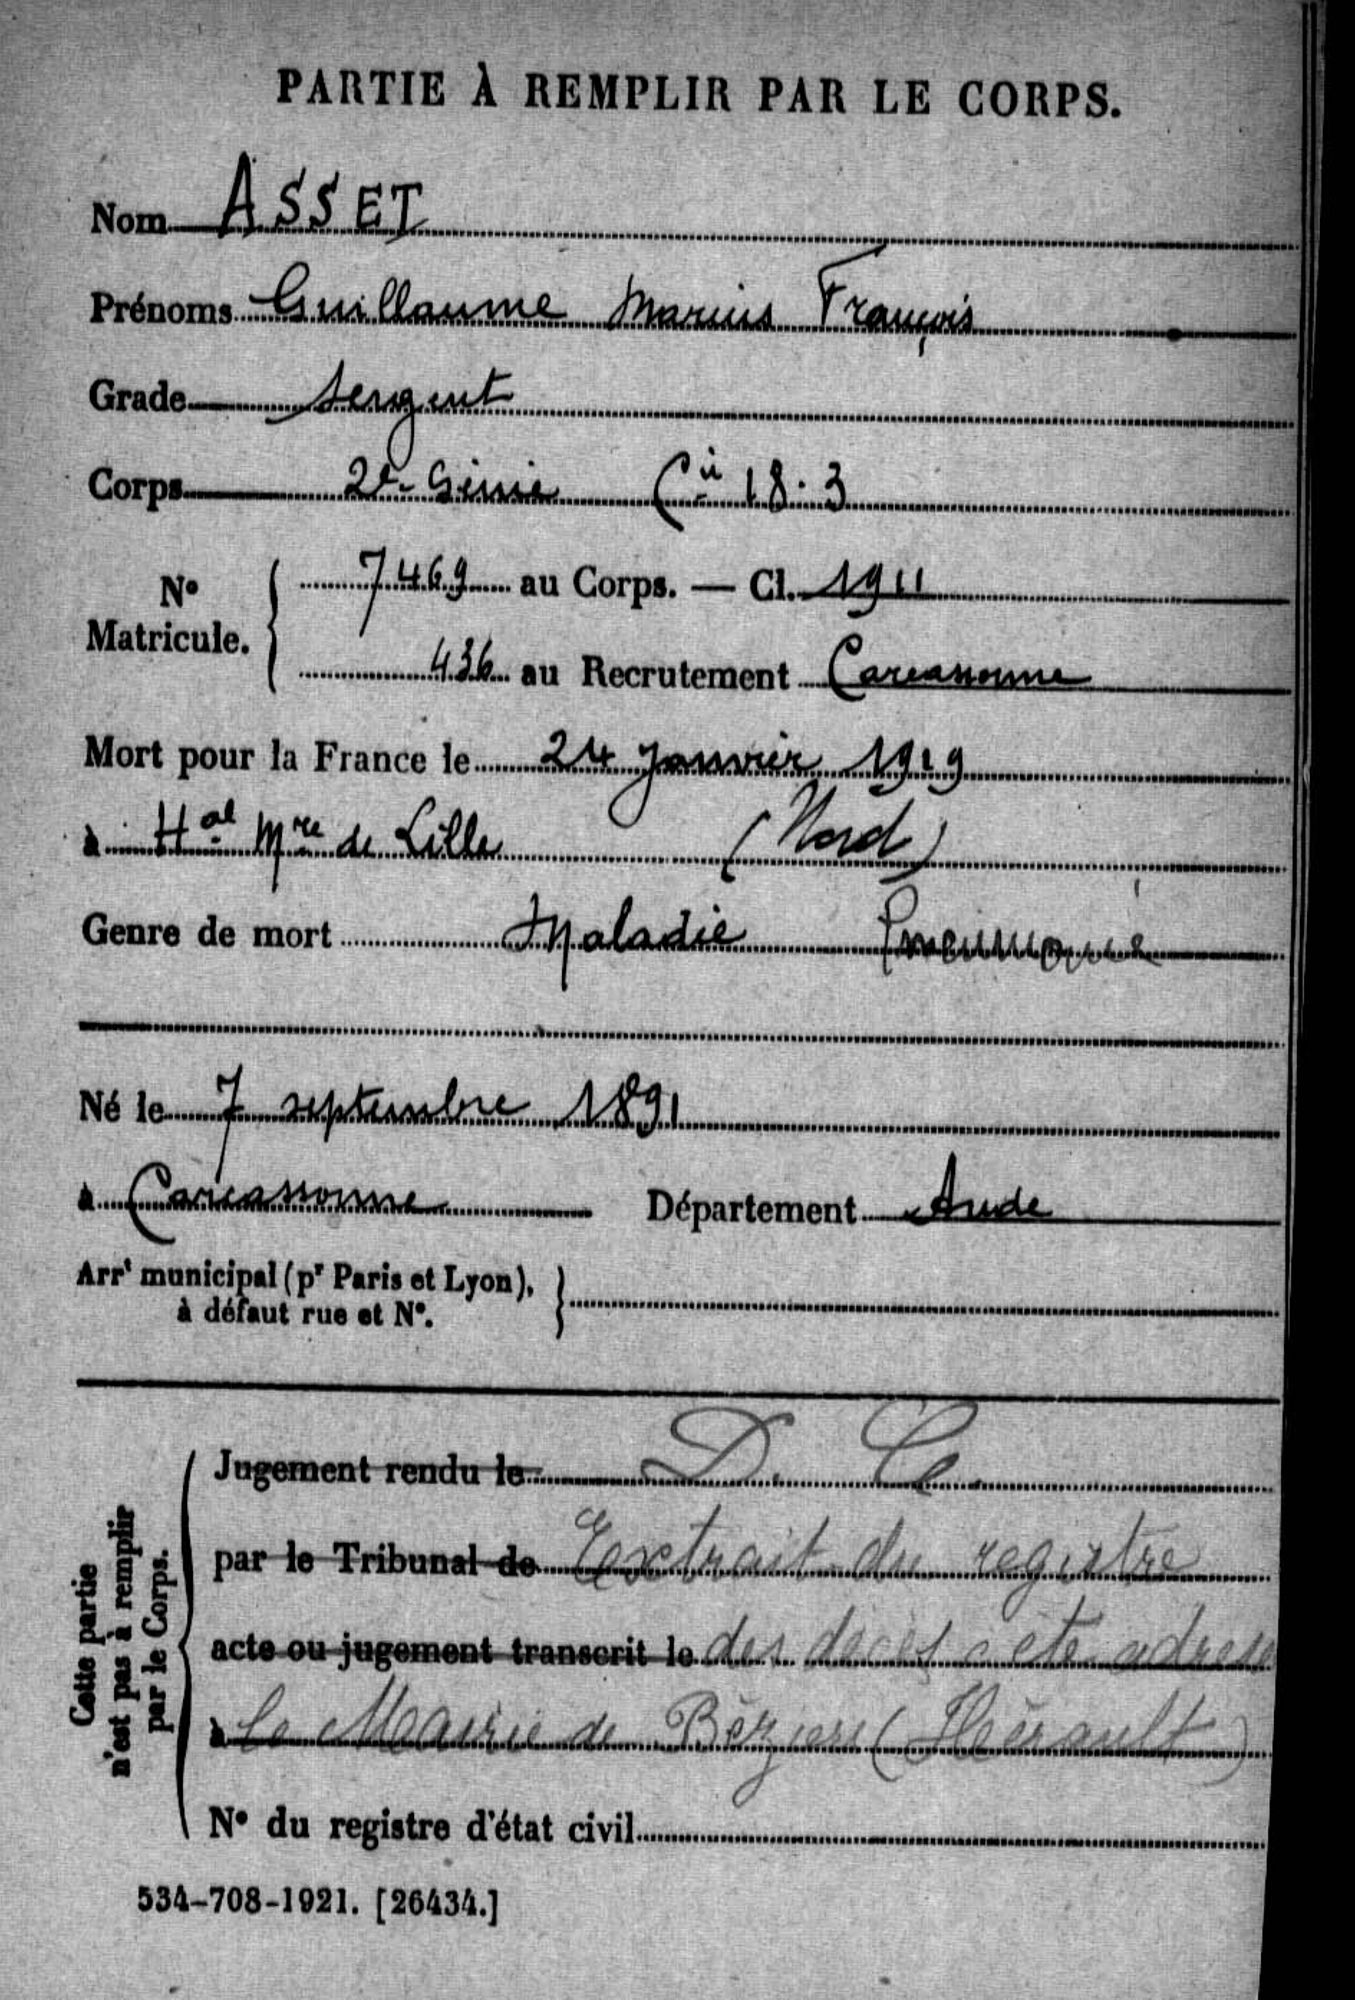 PARTIE À REMPLIR PAR LE CORPS.
Nom ASSET
Prénoms Guillaume Marius François
Grade Sergent
Corps 2e Génie Cie 18.3
No Matricule. 7469 au Corps. — Cl. 1911
436 au Recrutement Carcassonne
Mort pour la France le 24 Janvier 1919
à Hal Mre de Lille (Nord)
Genre de mort Maladie Pneumonie
Né le 7 septembre 1891
à Carcassonne Département Aude
Arrt municipal (pr Paris et Lyon),
à défaut rue et No.
Cette partie
n'est pas à remplir
par le Corps.
Jugement rendu le D. C.
par le Tribunal de Extrait du registre
acte ou jugement transcrit le des décès a été adressé
à la Mairie de Béziers (Hérault)
No du registre d'état civil
534-708-1921. [26434.]